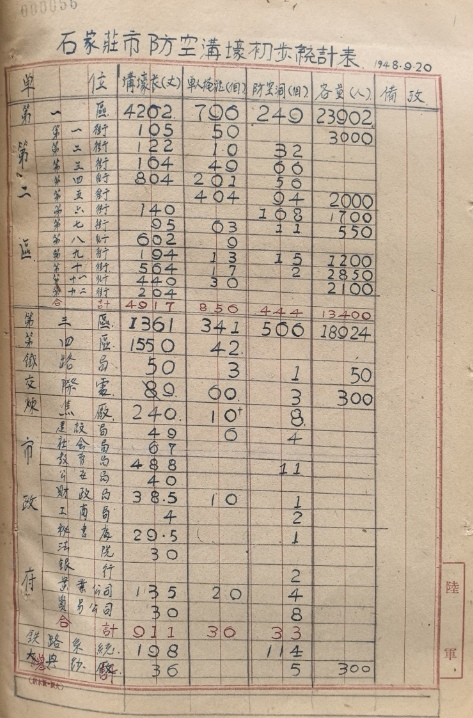 石家莊市防空溝壕初步統計表 1948.9.20
單位 溝壕長(丈) 單人掩體(個) 防空洞(個) 容量(人) 備攷
第一區 4202 796 249 23902
第二區
第一街 105 50 3000
第二街 122 10 32
第三街 164 49 66
第四街 804 201 56
第五街 404 94 2000
第六街 140 168 1700
第七街 95 63 11 550
第八街 602 9
第九街 194 13 15 1200
第十街 564 17 2 2850
第十一街 440 30 2100
第十二街 264
合計 4917 850 444 13400
第三區 1361 341 506 18924
第四區 1550 42
鐵路局 50 3 1 50
交際處 89 60 3 300
煉焦廠 240. 10 8
市政府
建設局 49 6 4
社會局 67
教育局 488 11
公安局 40
財政局 38.5 10 1
工商局 4 2
秘書處 29.5 1
法院 30
銀行 2
業公司 135 20 4
貿易公司 30 8
合計 911 36 33
鉄路系統 198 114
36 5 300
陸軍